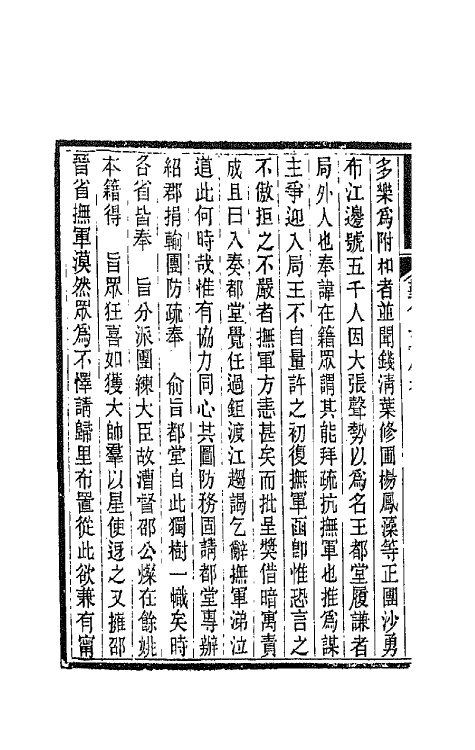 多樂爲附和者並聞錢淸葉修圃楊鳳藻等正團沙勇
布江邊號五千人因大張聲勢以爲名王都堂履謙者
局外人也奉諱在籍眾謂其能拜疏抗撫軍也推爲謀
主爭迎入局王不自量許之初復撫軍函卽惟恐言之
不傲拒之不嚴者撫軍方恚甚矣而批呈獎借暗寓責
成且曰入奏都堂覺任過鉅渡江趨謁乞辭撫軍涕泣
道此何時哉惟有協力同心共圖防務固請都堂專辦
紹郡捐輸團防疏奉　俞旨都堂自此獨樹一幟矣時
各省皆奉　旨分派團練大臣故漕督邵公燦在餘姚
本籍得　旨眾狂喜如獲大師羣以星使迓之又擁邵
晉省撫軍漠然眾爲不懌請歸里布置從此欲兼有甯